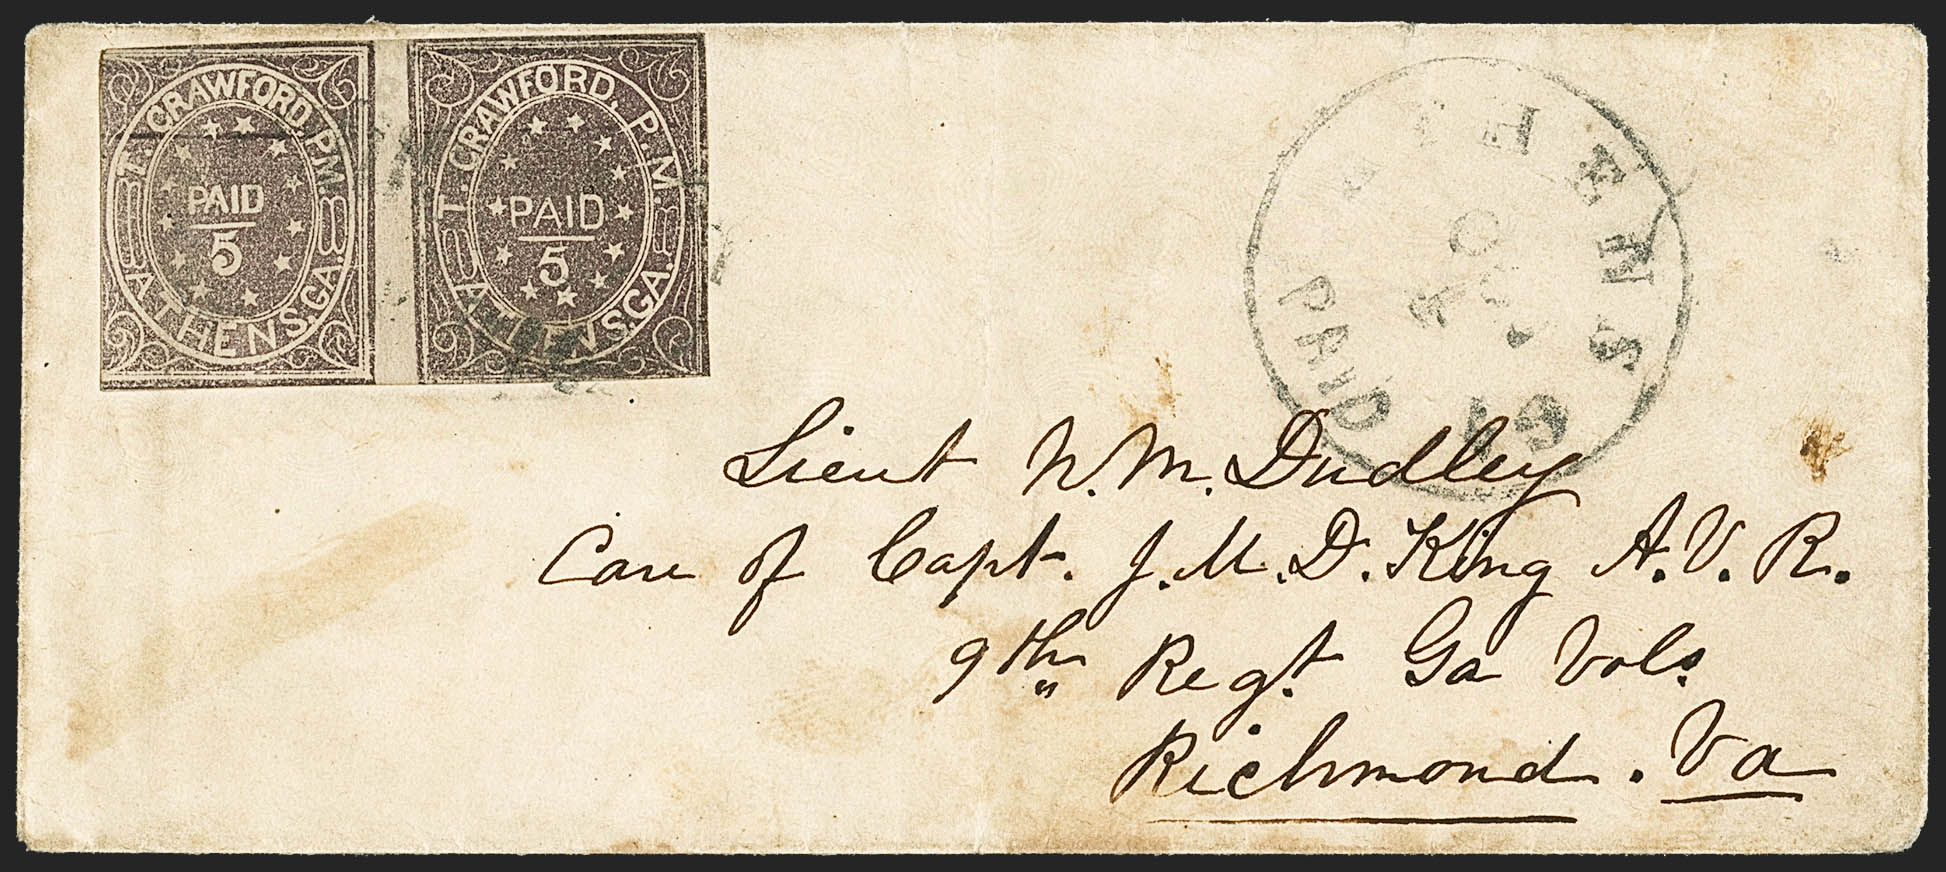 T. CRAWFORD, P.M.
PAID
5
ATHENS, GA.
T. CRAWFORD, P.M.
PAID
5
ATHENS, GA.
ATHENS GA
PAID
Lieut W. M. Dudley
Care of Capt. J. M. D. King A. V. R.
9th Regt. Ga Vols.
Richmond. Va